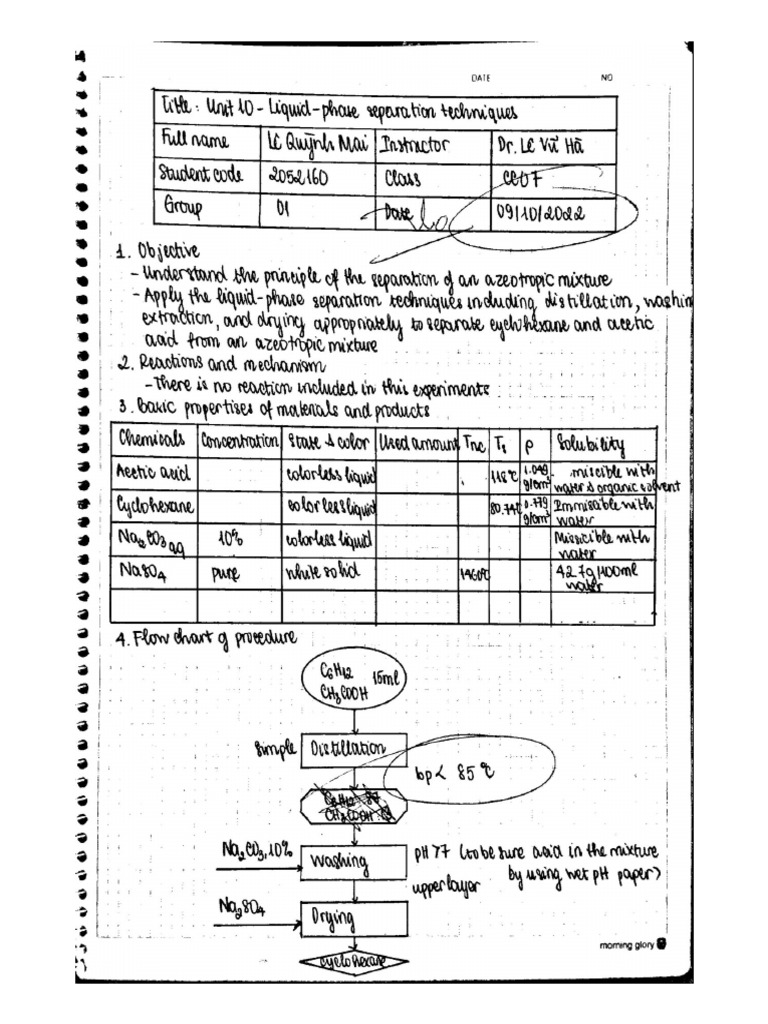 DATE NO
Title: Unit 10 - Liquid-phase separation techniques
Full name Lê Quỳnh Mai Instructor Dr. Lê Vũ Hà
Student code 2052160 Class CC07
Group 01 Date 09/10/2022
1. Objective
- Understand the principle of the separation of an azeotropic mixture
- Apply the liquid-phase separation techniques including distillation, washin
extraction, and drying appropriately to separate cyclohexane and acetic
acid from an azeotropic mixture
2. Reactions and mechanism
- There is no reaction included in this experiments
3. Basic propertises of materials and products
Chemicals Concentration State & color Used amount Tnc Ts ρ Solubility
Acetic acid colorless liquid 118°C 1.049 g/cm³ miscible with
water & organic solvent
Cyclohexane colorless liquid 80.74°C 0.779 g/cm³ Immiscible with
water
Na2CO3 aq 10% colorless liquid Miscicible with
water
NaSO4 pure white solid 1460°C 42.7g/100ml
water
4. Flow chart of procedure
C6H12 15ml
CH3COOH
Simple Distillation
bp < 85°C
C6H12
CH3COOH
Na2CO3, 10% Washing pH > 7 (to be sure acid in the mixture
upper layer by using wet pH paper)
Na2SO4 Drying
cyclohexane
morning glory